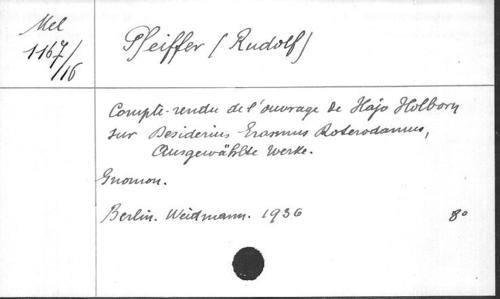 Mel
1167/16
Pfeiffer (Rudolf)
Compte-rendu de l'ouvrage de Hajo Holborn
sur Desiderius Erasmus Roterodamus,
Ausgewählte Werke.
Gnomon.
Berlin. Weidmann. 1936 8°